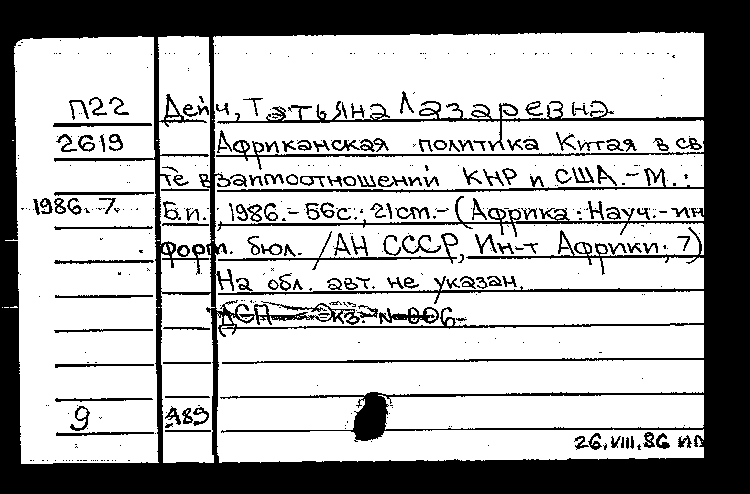 П22 Дейч, Татьяна Лазаревна.
2619 Африканская политика Китая в св
те взаимоотношений КНР и США.-М.:
1986. 7. Б.и., 1986.-56с.; 21см.-(Африка: Науч.-ин
форм. бюл. /АН СССР, Ин-т Африки; 7)
На обл. авт. не указан.
ДСП Экз. N 006.
9 А89
26.VIII.86